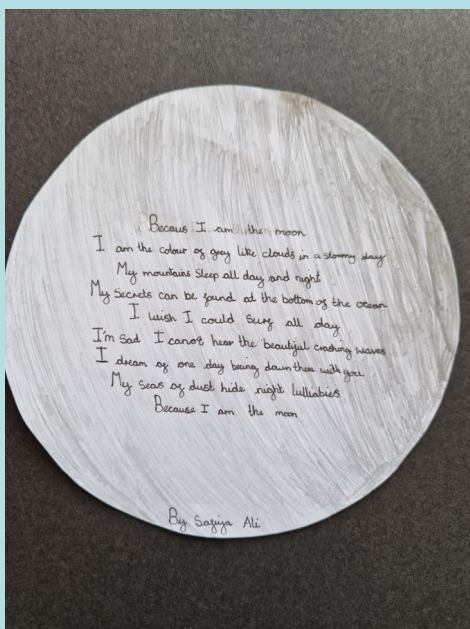 Becaus I am the moon
I am the colour of grey like clouds in a stormy day
My mountains sleep all day and night
My secrets can be found at the bottom of the ocean
I wish I could surf all day
I'm sad I canot hear the beautiful crashing waves
I dream of one day being down there with you
My seas of dust hide night lulliabies
Because I am the moon
By Safiya Ali